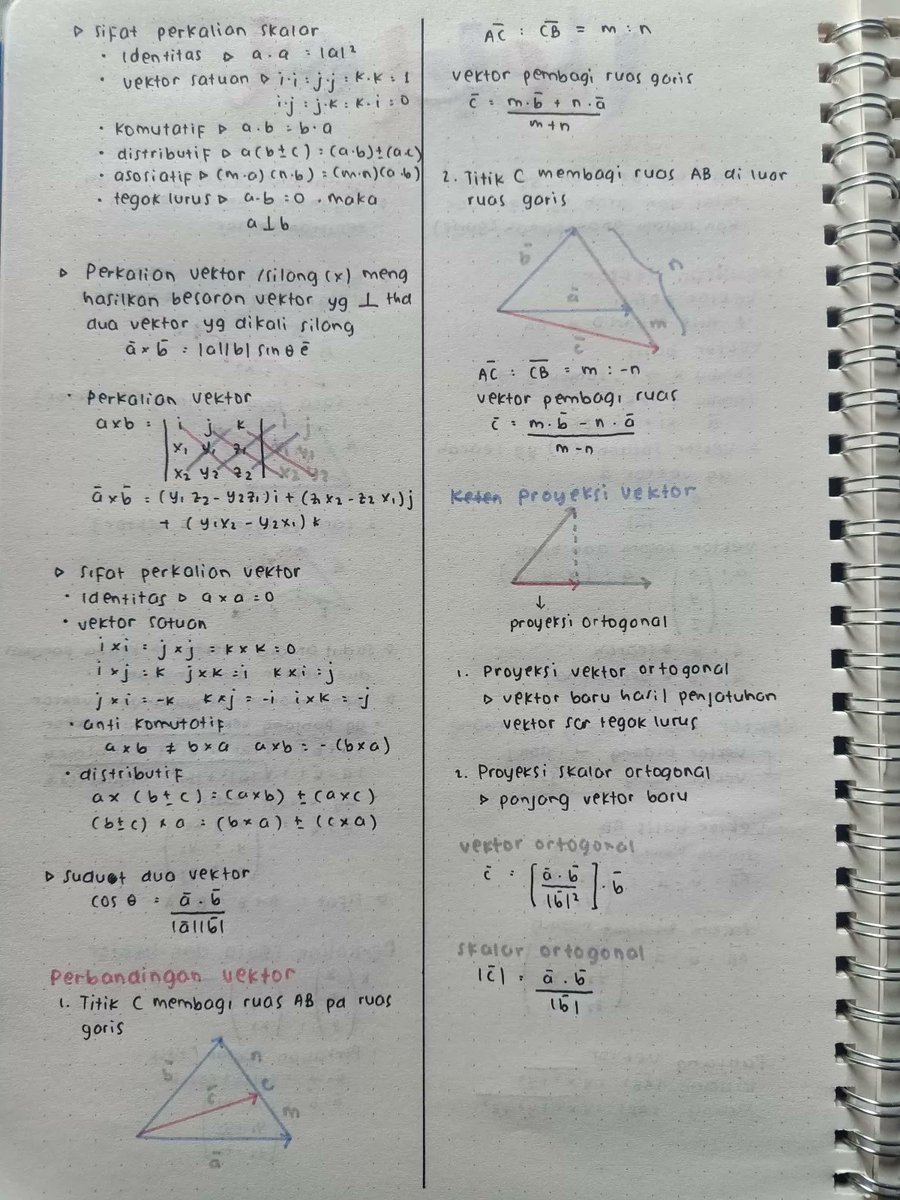 ▹ Sifat perkalian skalar
• Identitas ▹ a . a = |a|²
• vektor satuan ▹ i.i = j.j = k.k = 1
i.j = j.k = k.i = 0
• komutatif ▹ a.b = b.a
• distributif ▹ a(b±c) = (a.b)±(a.c)
• asosiatif ▹ (m.a)(n.b) = (m.n)(a.b)
• tegak lurus ▹ a.b = 0 . maka
a⊥b
▹ Perkalian vektor /silang (x) meng
hasilkan besaran vektor yg ⊥ thd
dua vektor yg dikali silang
ā × b̄ = |a||b| sin θ ē
• Perkalian vektor
axb = | i j k | i j
x₁ y₁ z₁ x₁ y₁
x₂ y₂ z₂ x₂ y₂
ā × b̄ = (y₁ z₂ - y₂z₁) i + (z₁ x₂ - z₂ x₁) j
+ (y₁x₂ - y₂x₁) k
▹ Sifat perkalian vektor
• Identitas ▹ a x a = 0
• vektor satuan
i x i = j x j = k x k = 0
i x j = k j x k = i k x i = j
j x i = -k k x j = -i i x k = -j
• anti komutatif
a x b ≠ b x a a x b = - (b x a)
• distributif
a x (b ± c) = (a x b) ± (a x c)
(b ± c) x a = (b x a) ± (c x a)
▹ Sudut dua vektor
cos θ = ā . b̄
|ā||b̄|
Perbandingan vektor
1. Titik C membagi ruas AB pa ruas
garis
b̄
n
c̄
c
m
ā
A̅C̅ : C̅B̅ = m : n
vektor pembagi ruas garis
c̄ = m.b̄ + n.ā
m+n
2. Titik C membagi ruas AB di luar
ruas garis
b̄
n
ā
m
c̄
A̅C̅ : C̅B̅ = m : -n
vektor pembagi ruas
c̄ = m.b̄ - n.ā
m-n
Keten Proyeksi vektor
↓
proyeksi ortogonal
1. Proyeksi vektor ortogonal
▹ vektor baru hasil penjatuhan
vektor scr tegak lurus
2. Proyeksi skalar ortogonal
▹ panjang vektor baru
vektor ortogonal
c̄ = [ā . b̄ ] . b̄
|b̄|²
skalar ortogonal
|c̄| = ā . b̄
|b̄|